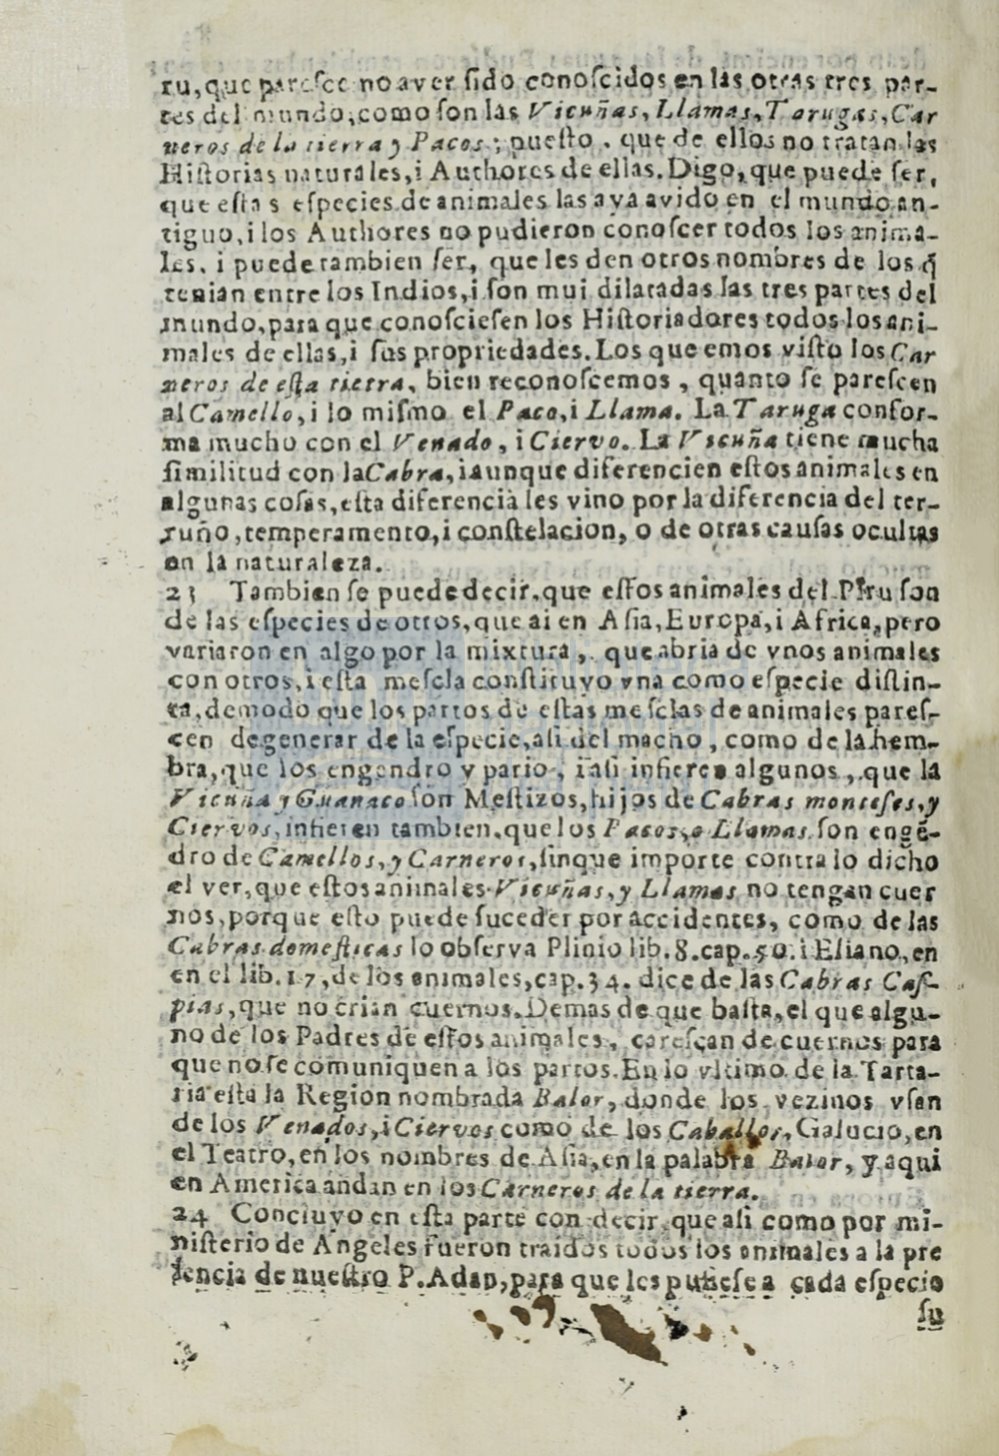 ru, que paresce no aver ſido conoſcidos en las otras tres par-
tes del mundo, como ſon las Vicuñas, Llamas, Tarugas, Car
neros de la tierra y Pacos; pueſto. que de ellos no tratan las
Hiſtorias naturales, i Authores de ellas. Digo, que puede ſer,
que eſtas eſpecies de animales las aya avido en el mundo an-
tiguo, i los Authores no pudieron conoſcer todos los anima-
les. i puede tambien ſer, que les den otros nombres de los q̃
tenian entre los Indios, i ſon mui dilatadas las tres partes del
mundo, para que conoſcieſen los Hiſtoriadores todos los ani-
males de ellas, i ſus propriedades. Los que emos viſto los Car
neros de eſta tierra, bien reconoſcemos, quanto ſe pareſcen
al Camello, i lo miſmo el Paco, i Llama. La Taruga confor-
ma mucho con el Venado, i Ciervo. La Vicuña tiene mucha
ſimilitud con la Cabra, i aunque diferencien eſtos animales en
algunas coſas, eſta diferencia les vino por la diferencia del ter-
ruño, temperamento, i conſtelacion, o de otras cauſas ocultas
en la naturaleza.
23 Tambien ſe puede decir, que eſtos animales del Piru ſon
de las eſpecies de otros, que ai en Aſia, Europa, i Africa, pero
variaron en algo por la mixtura, que abria de vnos animales
con otros, i eſta meſcla conſtituyo vna como eſpecie diſtin-
ta, demodo que los partos de eſtas meſclas de animales pareſ-
cen degenerar de la eſpecie, aſi del macho, como de la hem-
bra, que los engendro y pario, i aſi infieren algunos, que la
Vicuña y Guanaco ſon Meſtizos, hijos de Cabras monteſes, y
Ciervos, infieren tambien, que los Pacos, o Llamas ſon engẽ-
dro de Camellos, y Carneros, ſinque importe contra lo dicho
el ver, que eſtos animales Vicuñas, y Llamas no tengan cuer
nos, porque eſto puede ſuceder por accidentes, como de las
Cabras domeſticas lo obſerva Plinio lib. 8. cap. 50. i Eliano, en
en el lib. 17, de los animales, cap. 34. dice de las Cabras Caſ-
pias, que no crian cuernos. Demas de que baſta, el que algu-
no de los Padres de eſtos animales, careſcan de cuernos para
que no ſe comuniquen a los partos. En lo vltimo de la Tarta-
ria eſta la Region nombrada Balor, donde los vezinos vſan
de los Venados, i Ciervos como de los Caballos, Galucio, en
el Teatro, en los nombres de Aſia, en la palabra Balor, y aqui
en America andan en los Carneros de la tierra.
24 Concluyo en eſta parte con decir, que aſi como por mi-
niſterio de Angeles fueron traidos todos los animales a la pre
ſencia de nueſtro P. Adan, para que les puſieſe a cada eſpecie
ſu